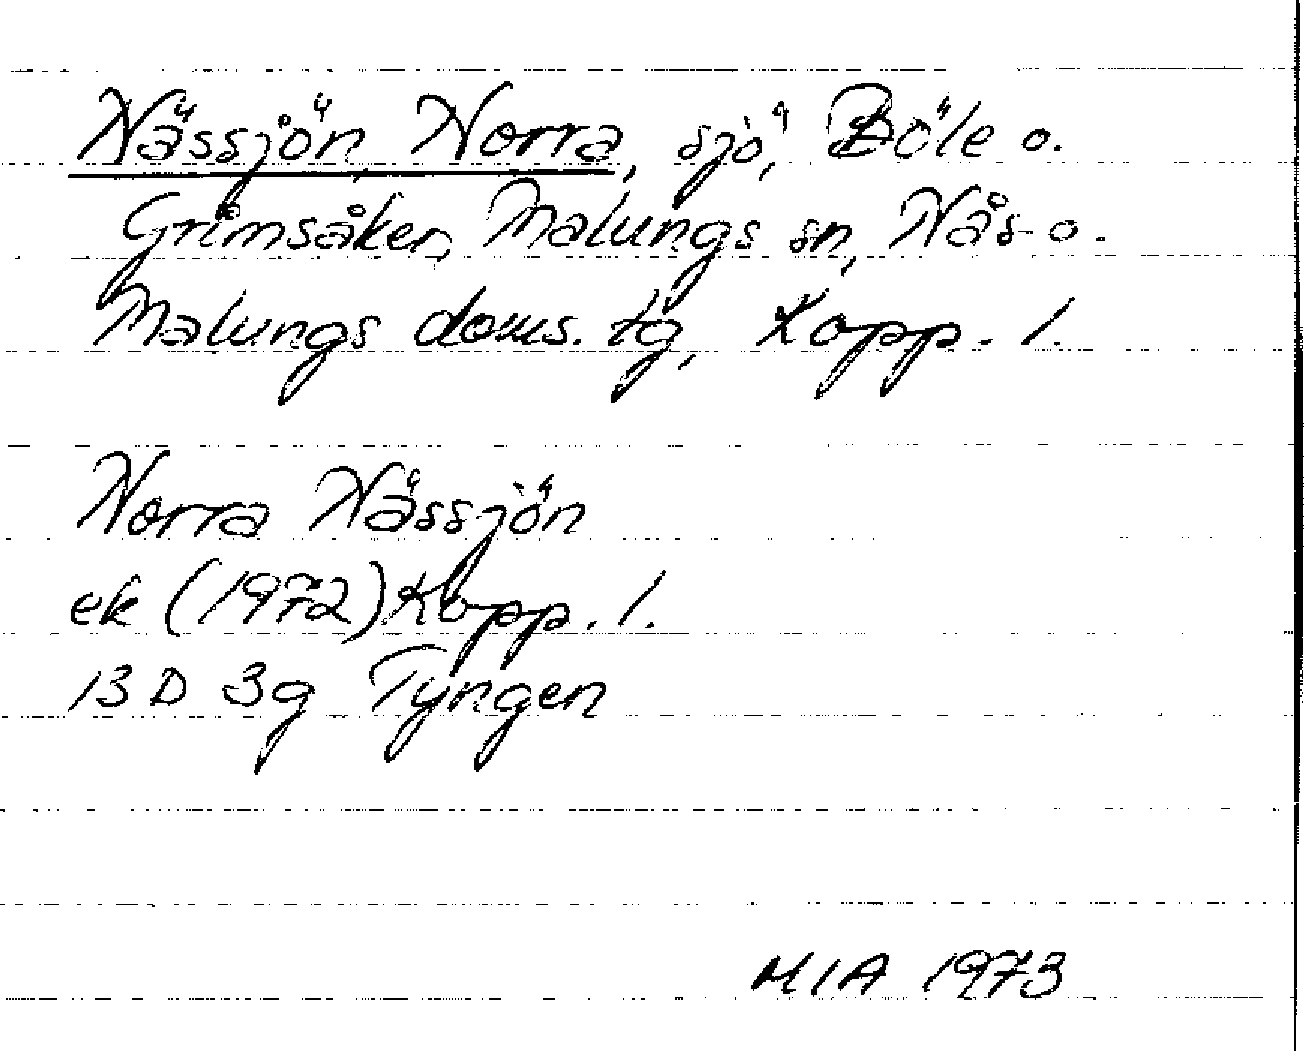 Nässjön, Norra, sjö, Böle o.
Grimsåker, Malungs sn, Nås- o.
Malungs doms. tg, Kopp. l.
Norra Nässjön
ek (1972) Kopp. l.
13 D 3g Tyngen
MIA 1973